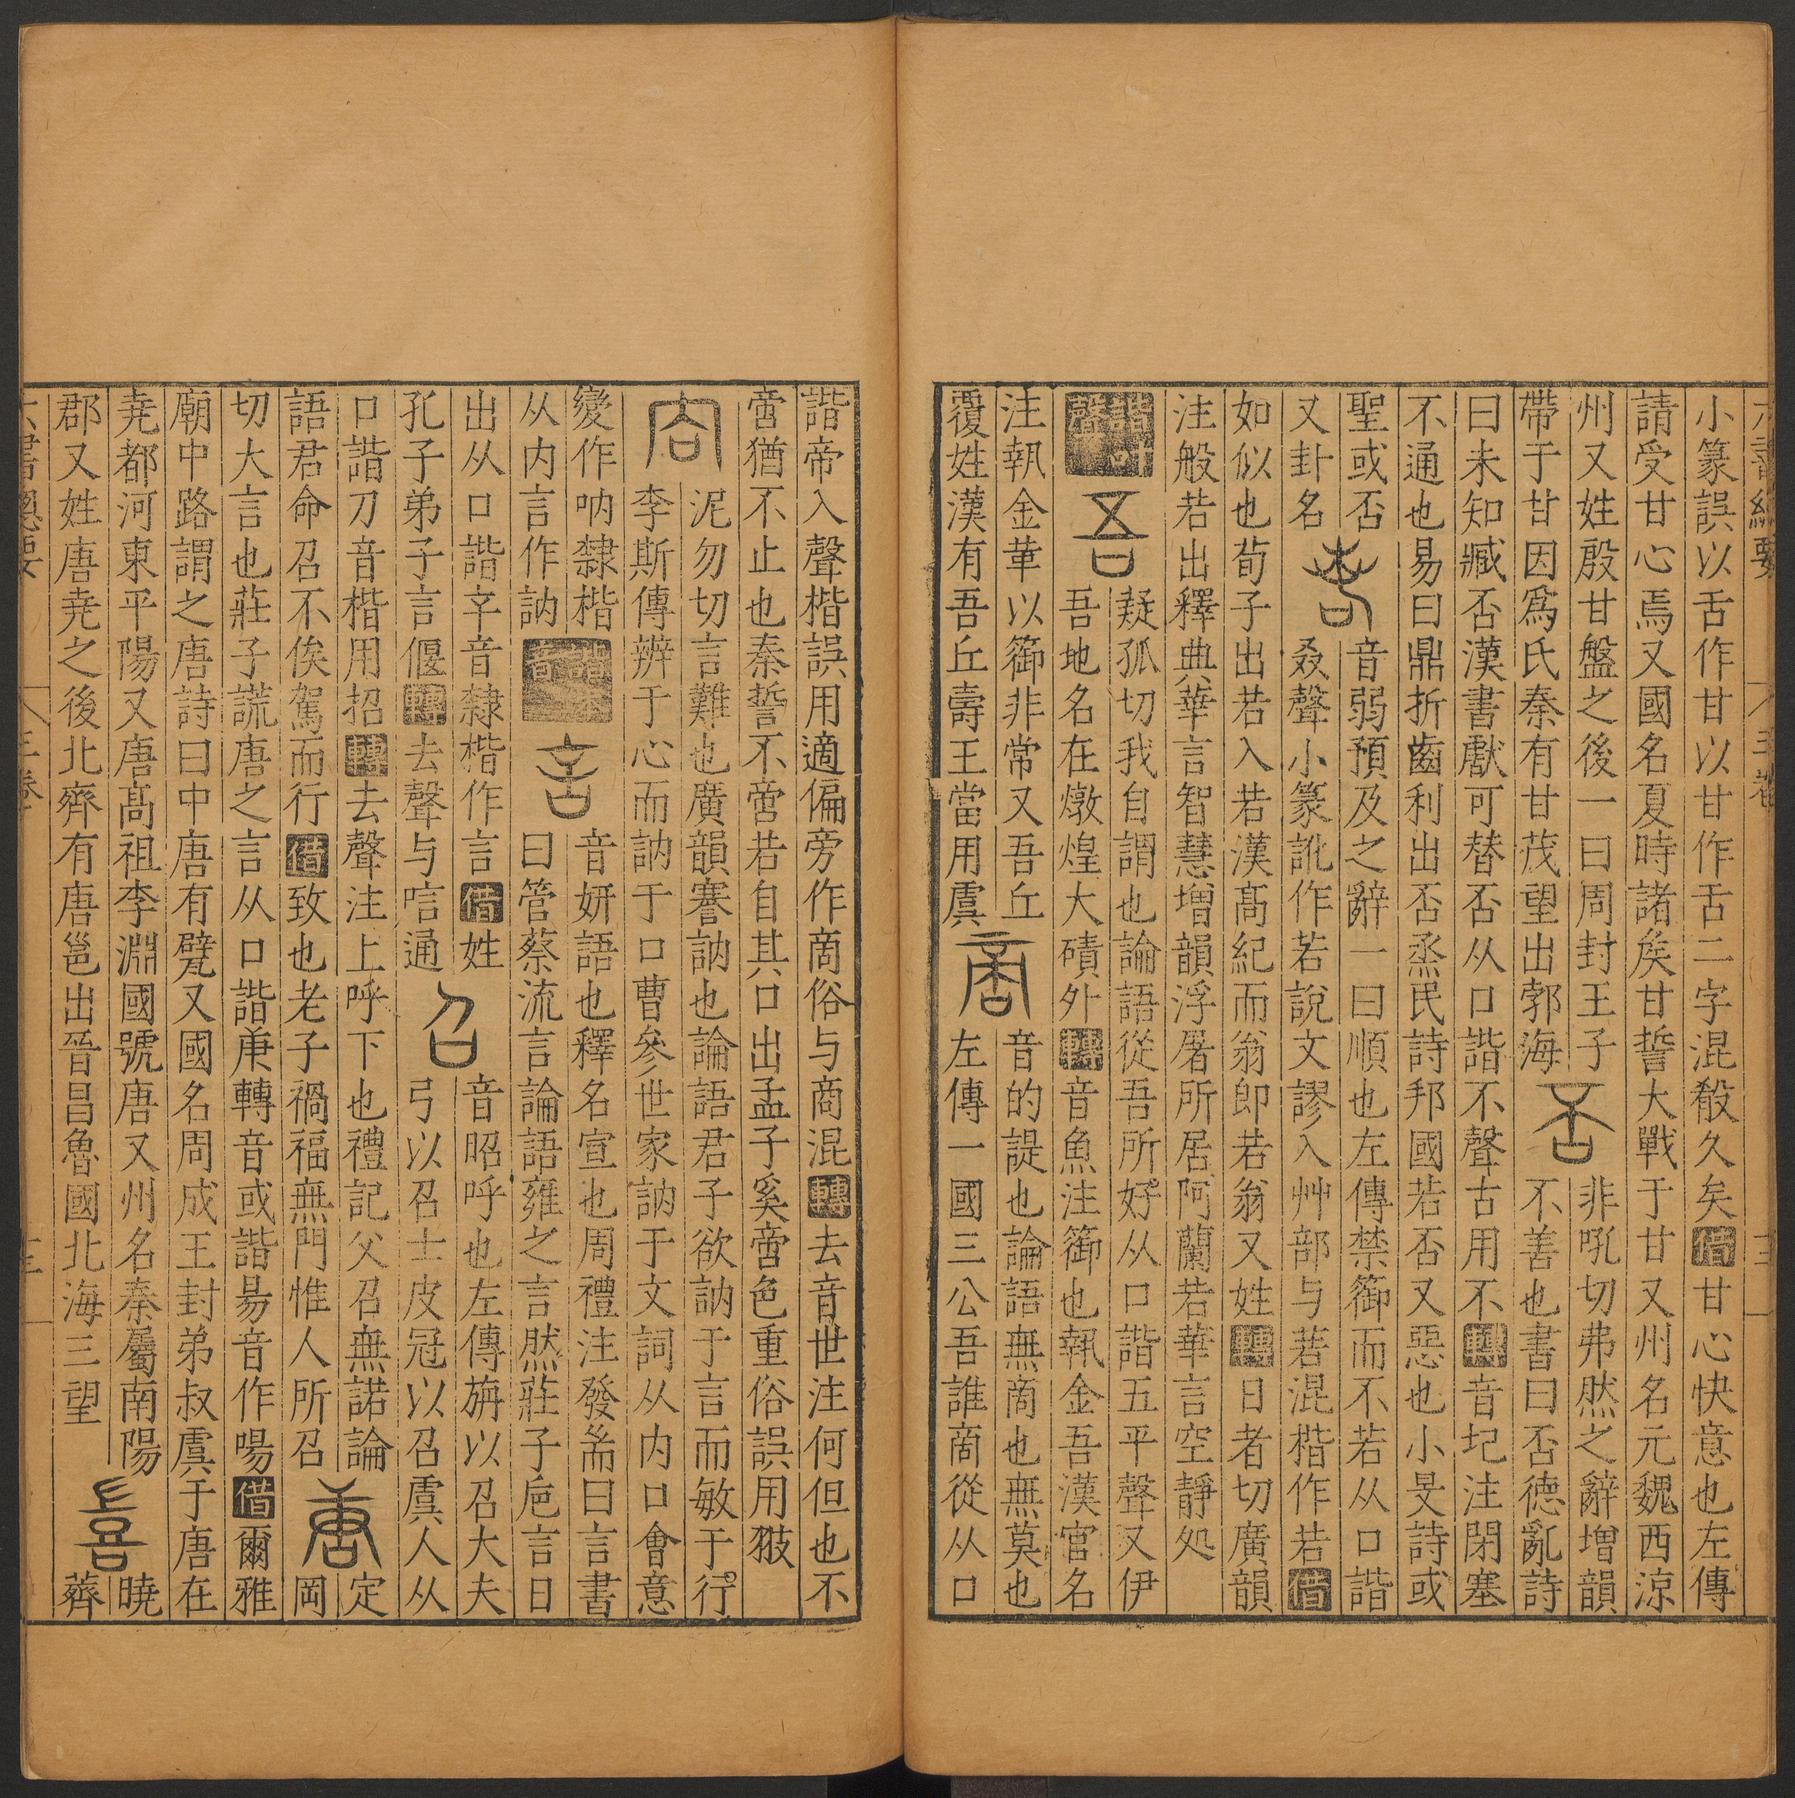 小篆誤以舌作甘以甘作舌二字混殽久矣借甘心快意也左傳
請受甘心焉又國名夏時諸矦甘誓大戰于甘又州名元魏西涼
州又姓殷甘盤之後一曰周封王子
帶于甘因爲氏秦有甘茂望出郭海
否
非吼切弗然之辭增韻
不善也書曰否德亂詩
曰未知臧否漢書獻可替否从口諧不聲古用不轉音圮注閉塞
不通也易曰鼎折齒利出否烝民詩邦國若否又惡也小旻詩或
聖或否
又卦名
音弱預及之辭一曰順也左傳禁御而不若从口諧
叒聲小篆訛作若說文謬入艸部与若混楷作若借
如似也荀子出若入若漢髙紀而翁即若翁又姓轉日者切廣韻
注般若出釋典華言智慧增韻浮屠所居阿蘭若華言空靜処
諧聲
吾
疑孤切我自謂也論語從吾所好从口諧五平聲又伊
吾地名在燉煌大磧外轉音魚注御也執金吾漢官名
注執金革以御非常又吾丘
覆姓漢有吾丘壽王當用虞
啇
音的諟也論語無啇也無莫也
左傳一國三公吾誰啇從从口
諧帝入聲楷誤用適偏旁作啇俗与商混轉去音世注何但也不
啻猶不止也秦誓不啻若自其口出孟子奚啻色重俗誤用翄
㕯
泥勿切言難也廣韻謇訥也論語君子欲訥于言而敏于行
李斯傳辨于心而訥于口曹參世家訥于文詞从内口會意
變作吶隸楷
从内言作訥
諧音
言
音妍語也釋名宣也周禮注發耑曰言書
曰管蔡流言論語雍之言然莊子巵言日
出从口諧䇂音隸楷作言借姓
孔子弟子言偃轉去聲与唁通
召
音昭呼也左傳旃以召大夫
弓以召士皮冠以召虞人从
口諧刀音楷用招轉去聲注上呼下也禮記父召無諾論
語君命召不俟駕而行借致也老子禍福無門惟人所召
唐
定
岡
切大言也莊子謊唐之言从口諧庚轉音或諧昜音作啺借爾雅
廟中路謂之唐詩曰中唐有甓又國名周成王封弟叔虞于唐在
堯都河東平陽又唐髙祖李淵國號唐又州名秦屬南陽
郡又姓唐堯之後北齊有唐邕出晉昌魯國北海三望
曉
薺